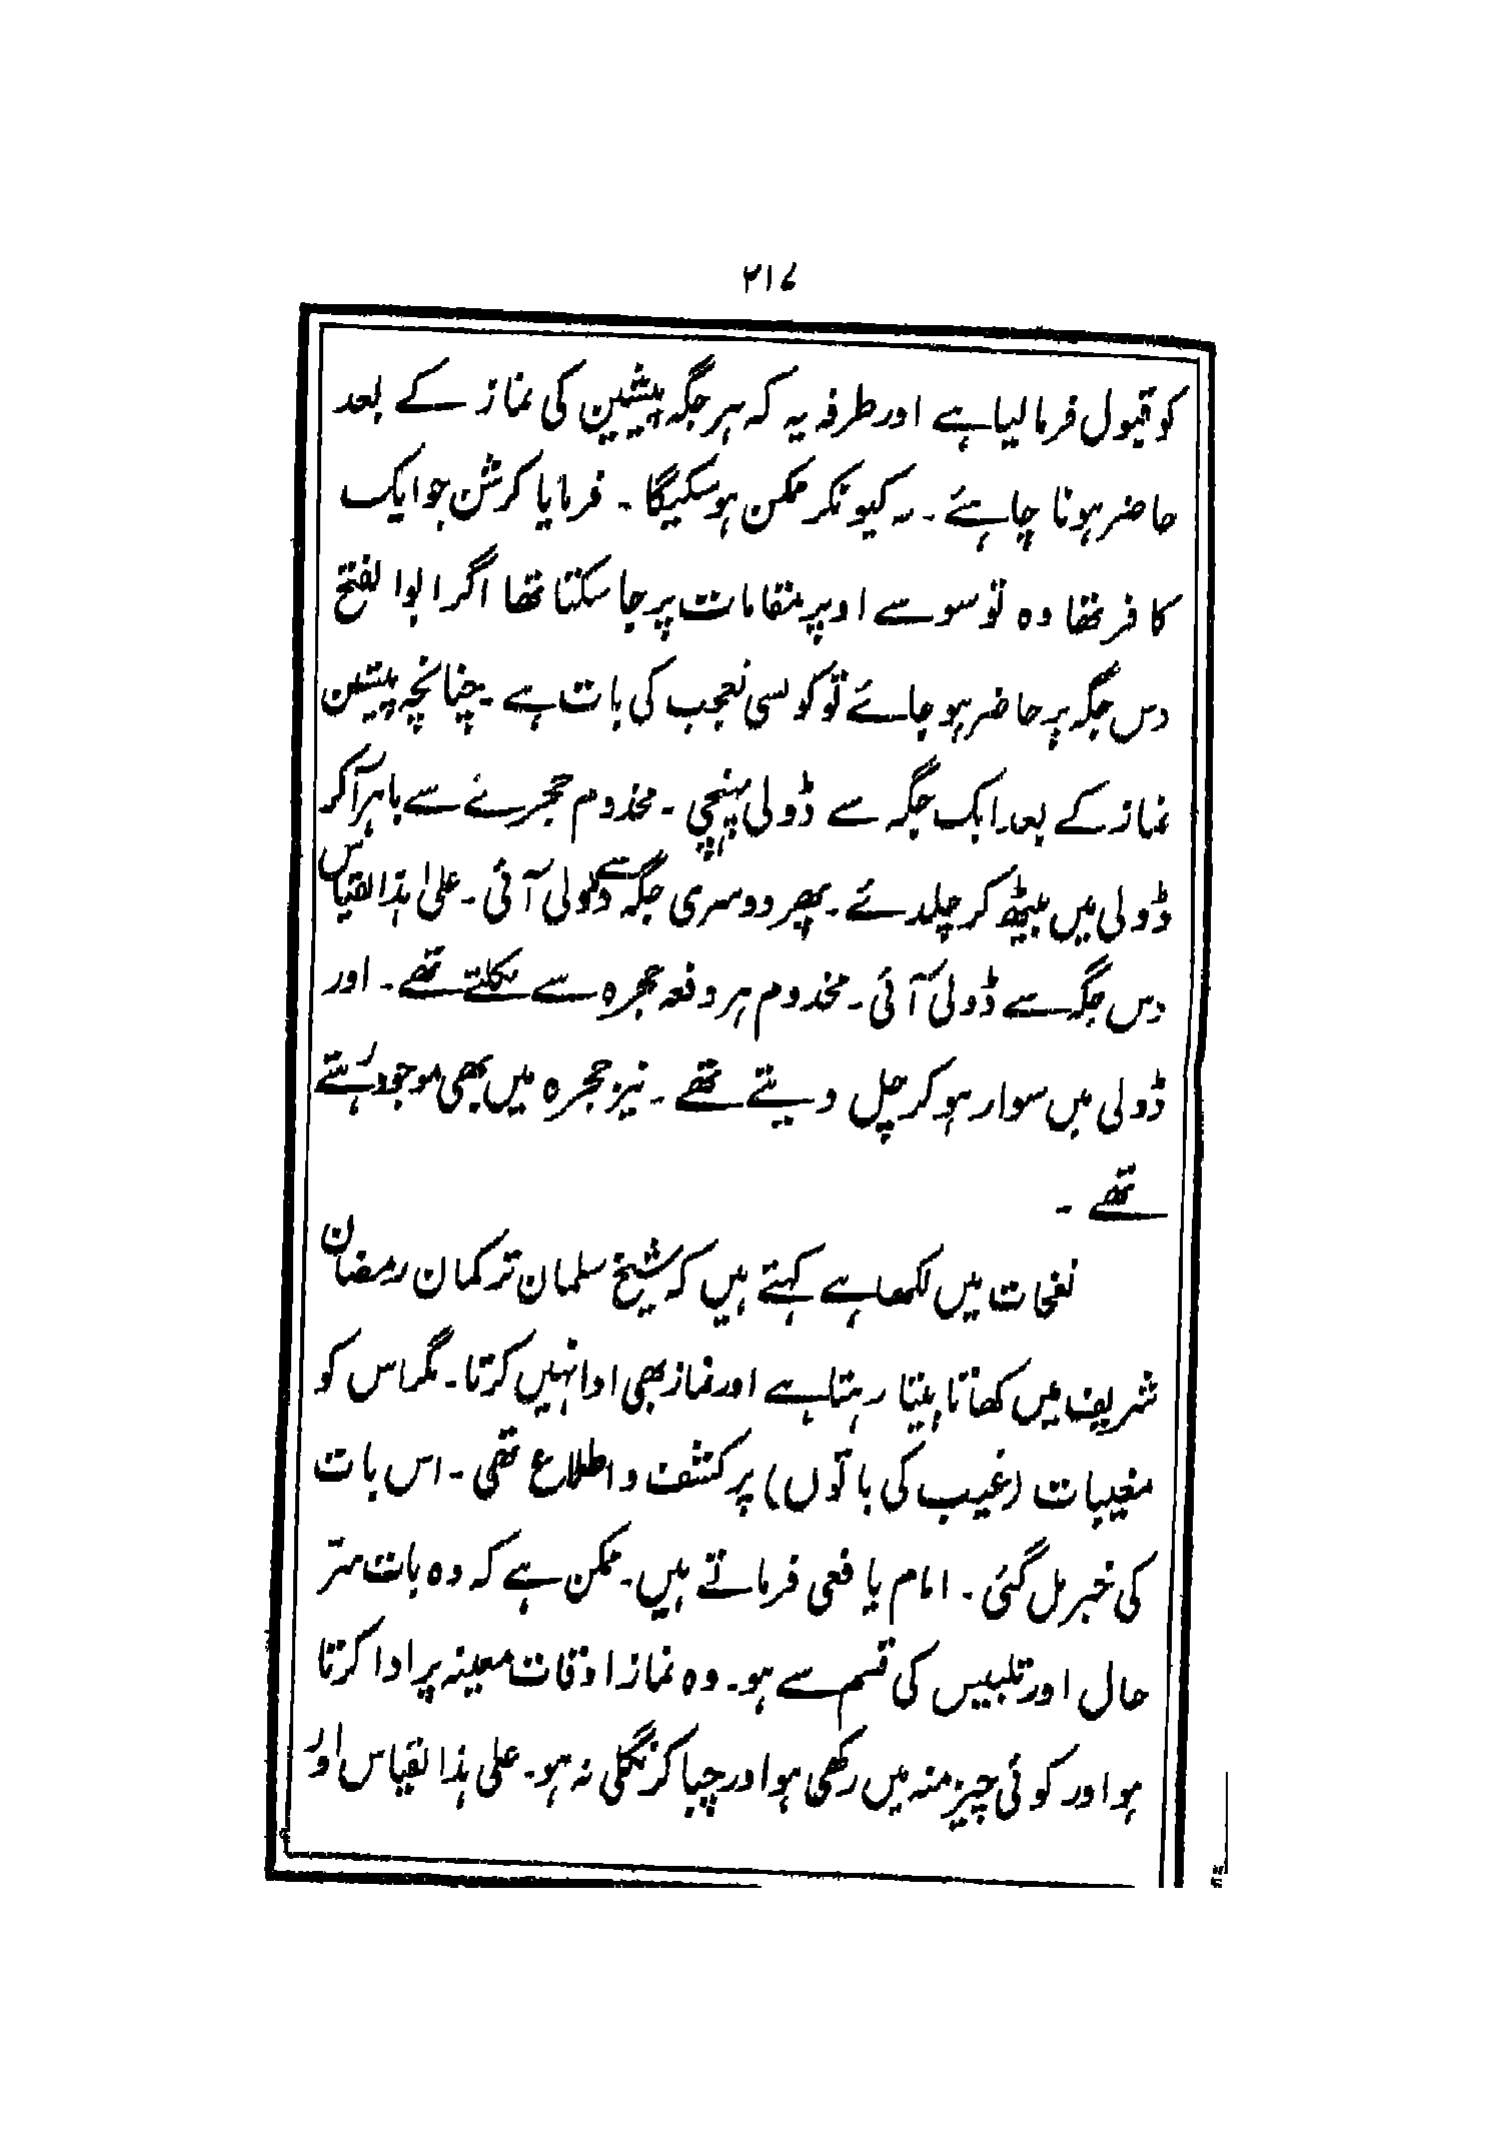 ۲۱۷
کو قبول فرما لیا ہے اور طرفہ یہ کہ ہر جگہ پیشین کی نماز کے بعد
حاضر ہونا چاہئے ۔ یہ کیونکر ممکن ہو سکیگا ۔ فرمایا کرشن جو ایک
کافر تھا وہ تو سو سے اوپر مقامات پر جا سکتا تھا اگر ابو الفتح
دس جگہ پر حاضر ہو جائے تو کونسی تعجب کی بات ہے ۔ چنانچہ پیشین
نماز کے بعد ایک جگہ سے ڈولی پہنچی ۔ مخدوم حجرے سے باہر آکر
ڈولی میں بیٹھ کر چلدئے ۔ پھر دوسری جگہ سے ڈولی آئی ۔ علیٰ ہذا القیاس
دس جگہ سے ڈولی آئی ۔ مخدوم ہر دفعہ حجرہ سے نکلتے تھے ۔ اور
ڈولی میں سوار ہو کر چل دیتے تھے ۔ نیز حجرہ میں بھی موجود رہتے
تھے ۔
نفحات میں لکھا ہے کہتے ہیں کہ شیخ سلمان ترکمان رمضان
شریف میں کھاتا پیتا رہتا ہے اور نماز بھی ادا نہیں کرتا ۔ مگر اس کو
مغیبات (غیب کی باتوں) پر کشف و اطلاع تھی ۔ اس بات
کی خبر مل گئی ۔ امام یافعی فرماتے ہیں ۔ ممکن ہے کہ وہ بات ستر
حال اور تلبیس کی قسم سے ہو ۔ وہ نماز اوقات معینہ پر ادا کرتا
ہو اور کوئی چیز منہ میں رکھی ہو اور چبا کر نگلی نہ ہو ۔ علی ہذا القیاس اور